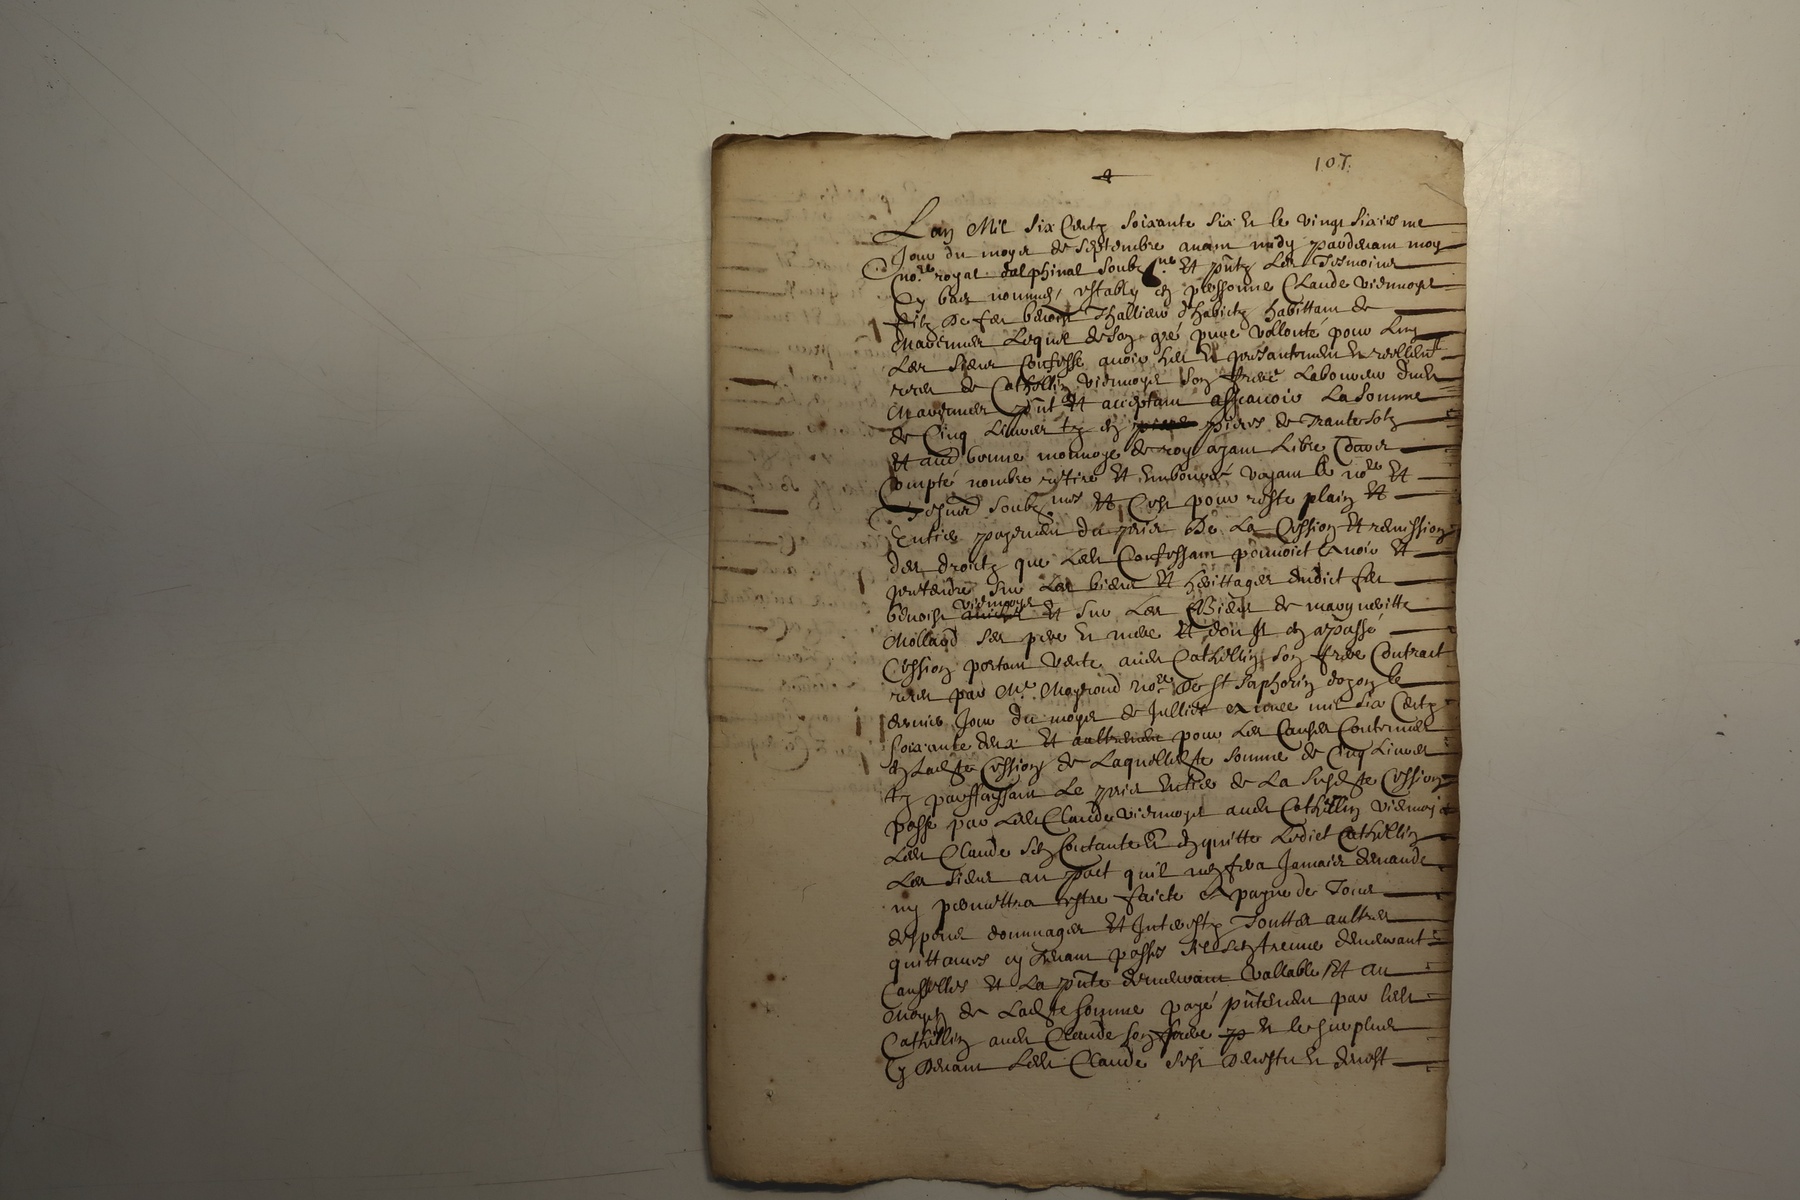 107.
Lan Mil six Centz soixante six et le vingt sixiesme
Jour du moys de septembre avant midy pardevant moy
no.re royal dalphinal soubz.né et pntz les Tesmoins
Cy bas nommés, estably en personne Claude viennoys
filz de feu benoist habittant de
lequel de son gré pure vollonté pour luy
les siens Confesse avoir heu et presantement
de Cathellin viennoys son frere Laboureur dudt
pnt et acceptant assçavoir La somme
de Cinq Livres tz en pieces de Trante solz
et aud bonne monnoye de roy ayant Libre Cours
Compté nombré retiré et Emboursé voyant le no.re et
Tesmoins soubz.nés et C'est pour reste plain et
Entier payement du prix de La Cession et remission
des droictz que Ledt Confessant pouvoict avoir et
pretendre sur Les biens et herittages dudict feu
benoist viennoys et sur Les Biens de margueritte
Mollard ses pere et mere et dont Il en a passé
Cession portant vente audt Cathellin son frere Contract
receu par M.e Moyroud No.re de St saphorin dozon le
dernier Jour du moys de Julliet mil six Centz
soixante deux et aultrement pour Les Causes Contenues
en Ladte Cession de Laquelle dte somme de Cinq Livres
tz parfaisant Le prix Entier de La susdte Cession
passé par Ledt Claude viennoys audt Cathellin viennoys
Ledt Claude s'en Contante Et en quitte Ledict Cathellin
Les siens au pact quil n'en fera Jamais demande
ny permettra estre faicte A payne de Tous
despens dommages et Interestz Touttes aultres
quittances cy devant passés
et La pnte vallable Et au
Moyen de Ladte somme payé pntement par ledt
Cathellin audt Claude son frere et le surplus
Cy devant Ledt Claude s'est devestu et devest